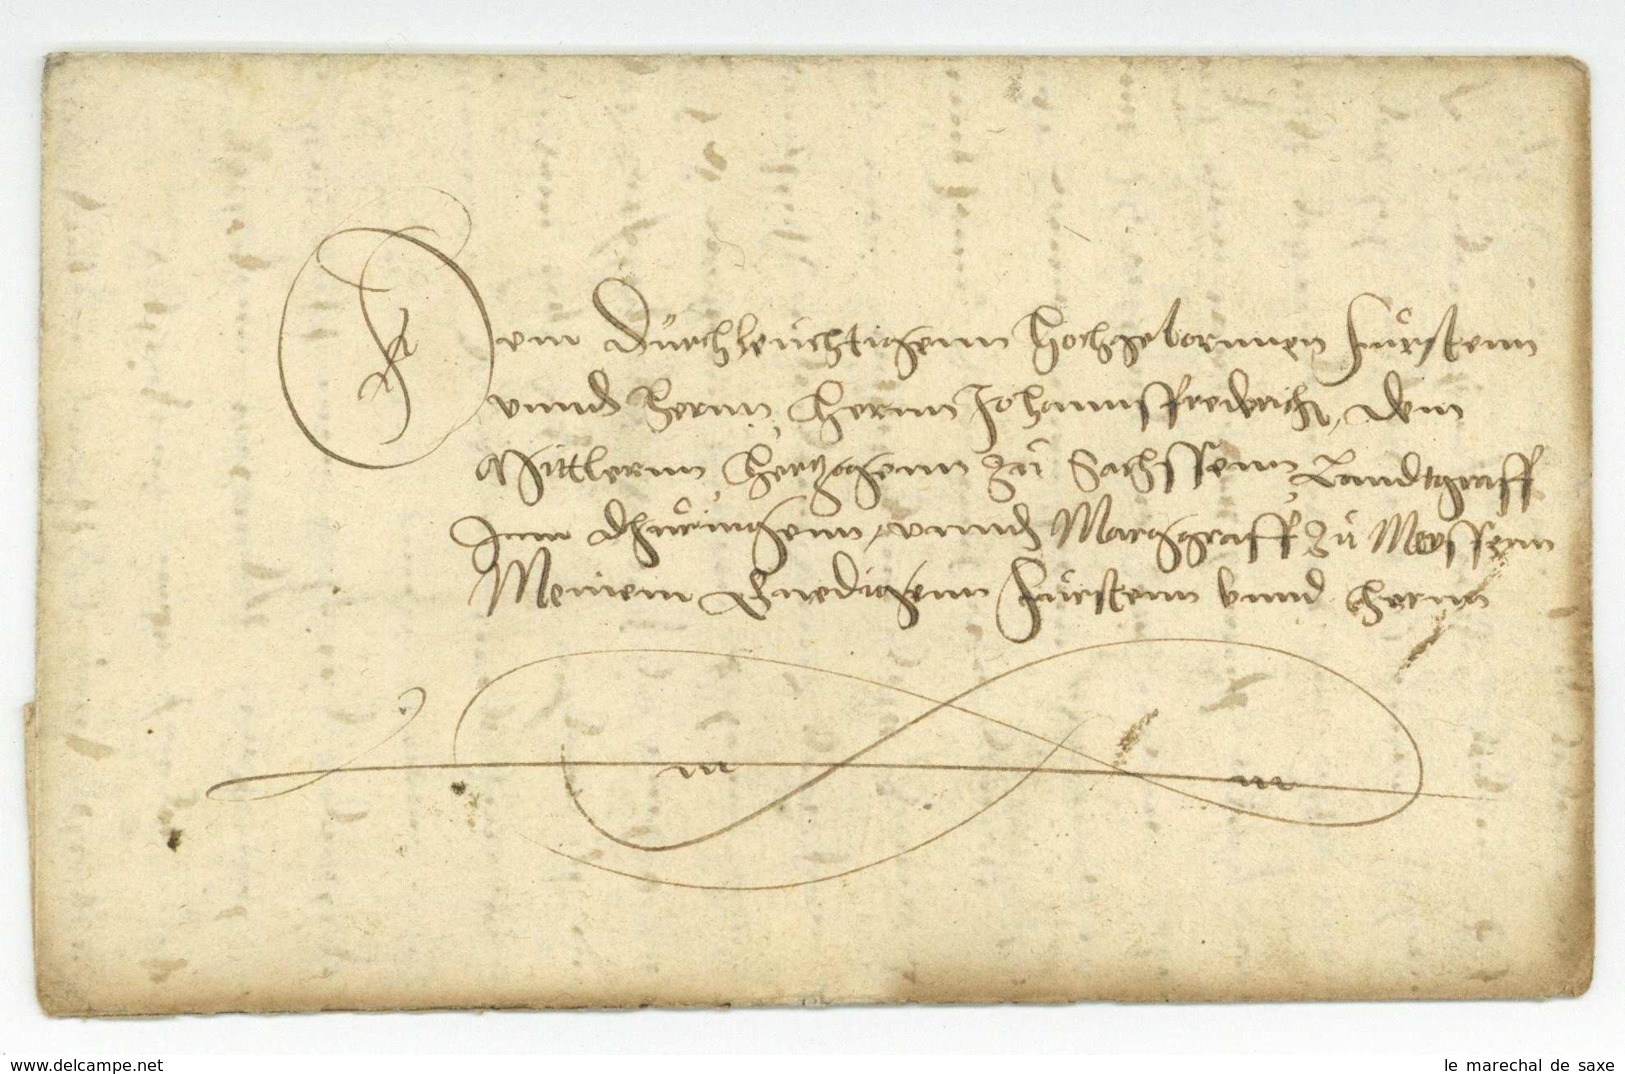 Dem Durchleuchtigenn Hochgebornnen Fürstenn
vnnd Hernn, Hernn Johannsffrederich, dem
Mittlernn Hertzogenn zu Sachssenn Landtgraff
Inn Dhuringenn, vnnd Marggraff zu Meyssenn
Meinem Gnedigenn Fürstenn vnnd Hernn
www.delcampe.net
le marechal de saxe